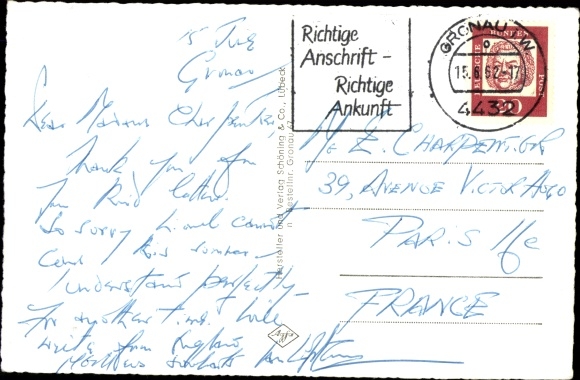 15
Gronau
Dear Madame Charpentier
Thank you for
your kind letter.
So sorry Lionel cannot
come this summer -
I understand perfectly -
For another time I will
write from England
Richtige
Anschrift -
Richtige
Ankunft
GRONAU W.
15.6.62-17
4432
DEUTSCHE BUNDESPOST
20
E. CHARPENTIER
39, AVENUE VICTOR HUGO
PARIS 16e
FRANCE
Hersteller und Verlag Schöning & Co., Lübeck
Bestellnr. Gronau
Agfa